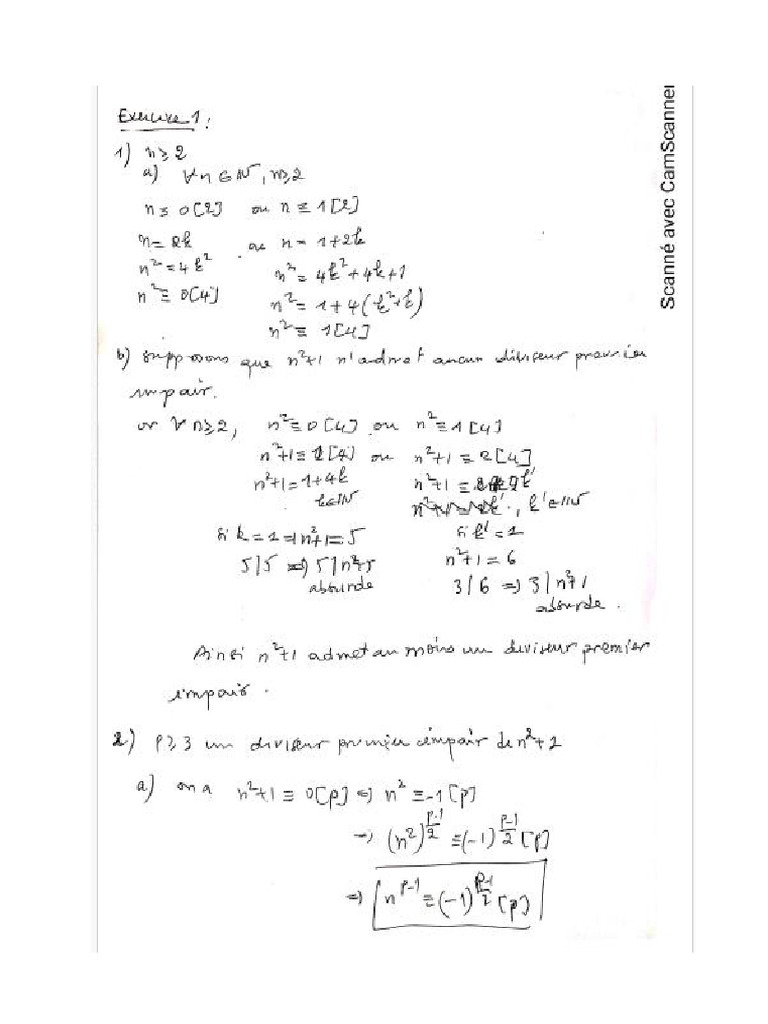 Exercice 1:
1) n ≥ 2
a) ∀ n ∈ IN, n ≥ 2
n ≡ 0 [2] ou n ≡ 1 [2]
n = 2k ou n = 1+2k
n² = 4k² n² = 4k²+4k+1
n² ≡ 0[4] n² = 1+4(k²+k)
n² ≡ 1[4]
b) supposons que n²+1 n'admet aucun diviseur premier
impair.
or ∀ n ≥ 2, n² ≡ 0[4] ou n² ≡ 1[4]
n²+1 ≡ 1[4] ou n²+1 ≡ 2[4]
n²+1 = 1+4k n²+1 ≡
k ∈ IN , k' ∈ IN
si k = 1 ⇒ n²+1 = 5 si k' = 1
5/5 ⇒ 5/ n²+1 = 6
absurde 3/6 ⇒ 3/n²+1
absurde.
Ainsi n²+1 admet au moins un diviseur premier
impair.
2) P ≥ 3 un diviseur premier impair de
a) on a n²+1 ≡ 0[p] ⇒ n² ≡ -1[p]
⇒ (n²)^((p-1)/2) ≡ (-1)^((p-1)/2) [p]
⇒ n^(p-1) ≡ (-1)^((p-1)/2) [p]
Scanné avec CamScanner